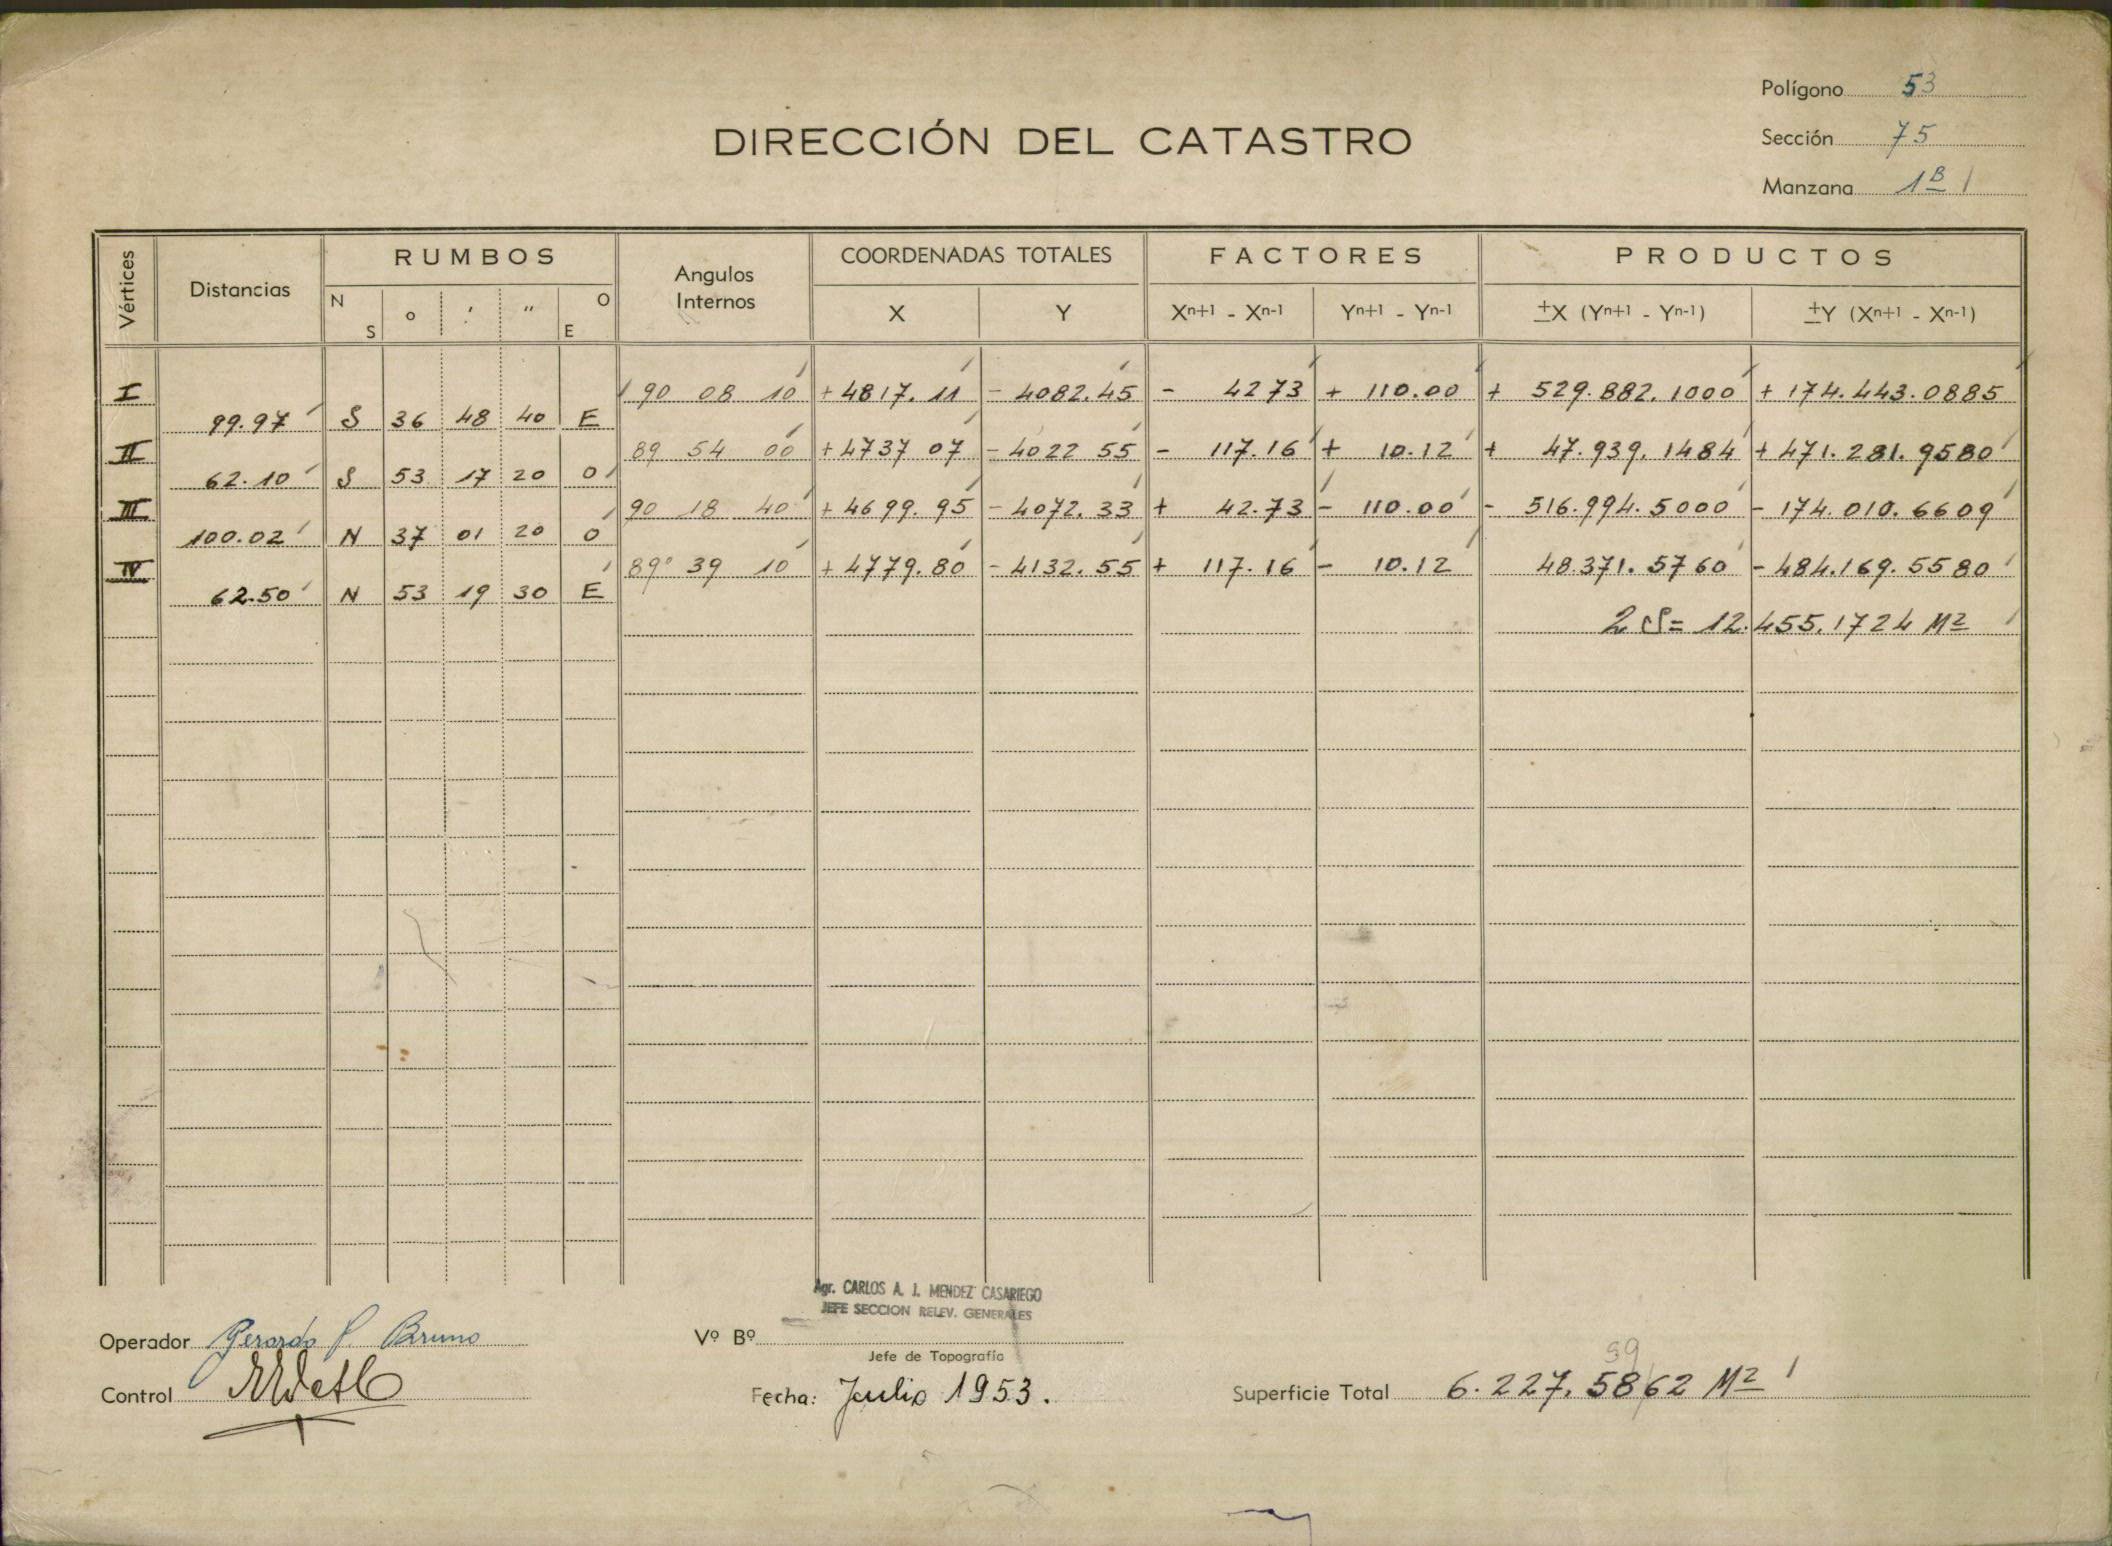 Polígono 53
DIRECCIÓN DEL CATASTRO
Sección 75
Manzana 1B
Vértices Distancias RUMBOS Angulos Internos COORDENADAS TOTALES FACTORES PRODUCTOS
N S o ' " O E X Y Xn+1 - Xn-1 Yn+1 - Yn-1 ±X (Yn+1 - Yn-1) ±Y (Xn+1 - Xn-1)
I 90 08 10 + 4817.11 - 4082.45 - 4273 + 110.00 + 529.882.1000 + 174.443.0885
99.97 S 36 48 40 E
II 89 54 00 + 4737 07 - 4022 55 - 117.16 + 10.12 + 47.939.1484 + 471.281.9580
62.10 S 53 17 20 O
III 90 18 40 + 4699.95 - 4072.33 + 42.73 - 110.00 - 516.994.5000 - 174.010.6609
100.02 N 37 01 20 O
IV 89° 39 10 + 4779.80 - 4132.55 + 117.16 - 10.12 48.371.5760 - 484.169.5580
62.50 N 53 19 30 E
2 S = 12.455.1724 M2
Agr. CARLOS A. J. MENDEZ CASARIEGO
JEFE SECCION RELEV. GENERALES
Operador Gerardo P. Bruno Vº Bº
Jefe de Topografía
59
Control Fecha: Julio 1953. Superficie Total 6.227.5862 M2